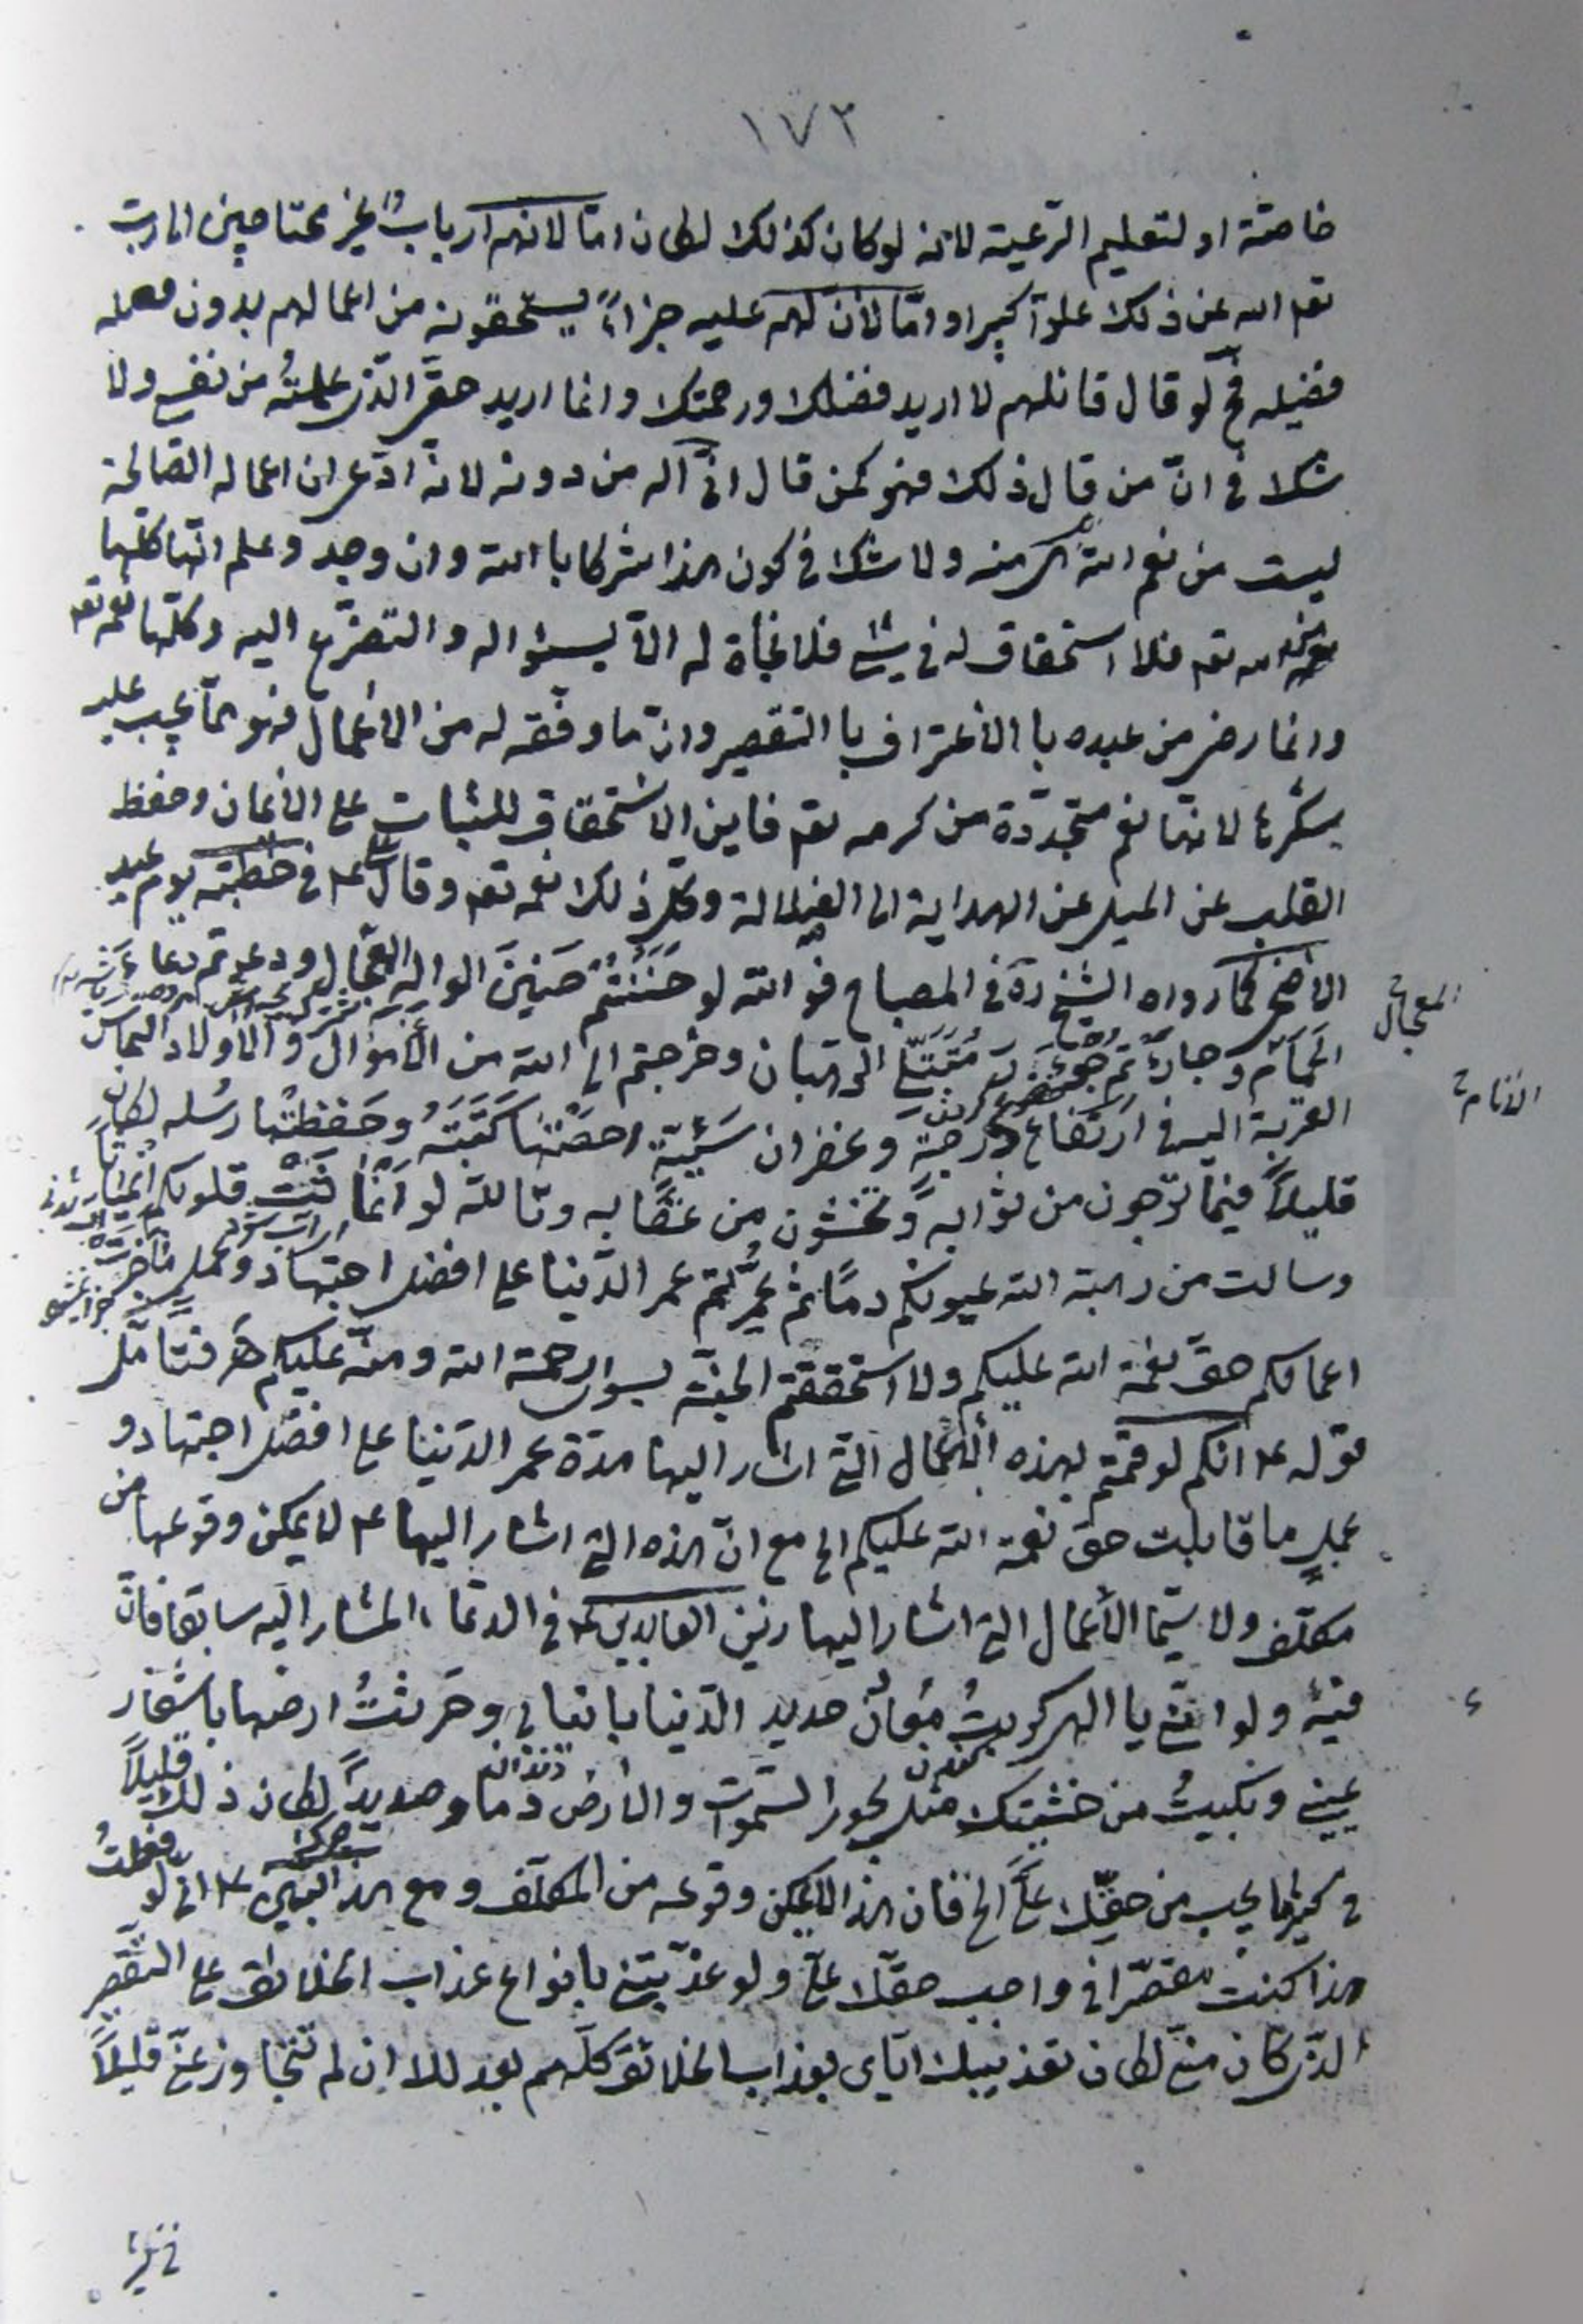 ١٧٢
خاصّة او لتعليم الرّعيّة لانه لو كان كذلك لكان امّا لانهم ارباب غير محتاجين الى ربّ
تعه الله عن ذلك علوّاً كبيرا و امّا لأنّ لهم عليه جزاءً يستحقونه من اعمالهم بدون
فضيله فح لو قال قائلهم لا اريد فضلك ورحمتك و انما اريد حقّى الذّى عملتُه من نفسى و لا
شك فى انّ من قال ذلك فهو كمن قال انّى اله من دونه لانه ادّعى ان اعماله الصّالحة
ليست من نعم الله بل منه و لا شك فى كون هذا شركا باالله و ان وجد و علم انّها كلّها
من الله تعه فلا استحقاق له فى شئ فلا نجاة له الّا بسؤاله و التضرّع اليه و كلّها نعمه تعه
و انما رضى من عبده باالأعتراف باالتقصير و انّ ما وفّقه له من الأعمال فهو ممّا يجب عليه
شكرها لانّها نعم متجدّدة من كرمه تعه فاين الاستحقاق للثبات على الأيمان و حفظ
القلب عن الميل عن الهداية الى الضلالة و كل ذلك نعمه تعه و قال علىّ ع فى خطبته يوم عيد
الأضحى كما رواه الشيخ ره فى المصباح فوالله لو حَنَنْتُم حَنينَ الواله العجال و دعوتم دعاء
المعجال خ
الحَمام و جأرتم جُؤارَ مُتَبَتّلى الرهبان و خرجتم الى الله من الأموال و الأولاد التماس
الأنام خ
القربة اليه فى ارتفاع درجة و غفران سَيّئة احصتْها كَتَبَتُه و حَفِظَتْها رسُله لكان
قليلاً فيما ترجون من ثوابه و تخشون من عقابه و تالله لو انماثت قلوبكم انمياثا
و سالت من رهبة الله عيونكم دمًا ثم عُمّرتم عمر الدّنيا على افضل اجتهاد و عمل ما جزت
اعمالكم حقّ نعمة الله عليكم و لا استحققتم الجنّة بسوى رحمة الله و منّه عليكم هَ فتأمّل
قوله ع انكم لو قمتم بهذه الأعمال الّتى اشار اليها مدّة عمر الدّنيا على افضل اجتهاد و
عمل ما قابلت حق نعمة الله عليكم الخ مع انّ هذه الّتى اشار اليها ع لا يمكن وقوعها من
مكلّف و لا سيّما الأعمال الّتى اشار اليها زين العابدين ع فى الدعاء المشار اليه سابقا فانّ
فيه و لو انّنى يا الهى كربتُ معادن حديد الدّنيا بانيابى و حَرثتُ ارضها باشفار
عينى و بكيتُ من خشيتك مثل بحور السّموات و الأرض دما و صديداً لكان ذلك قليلاً
فى كثير ما يجب من حقّك علىّ الخ فان هذا لا يمكن وقوعه من المكلّف و مع هذا ع انّى لو فعلتُ
هذا كنت مقصّرا فى واجب حقّك علىّ و لو عذّبتنى بانواع عذاب الخلائق على التقصير
الذّى كان منّى لكان تعذيبك ايّاى بعذاب الخلائق كلّهم بعدلك ان لم تتجاوز عنّى قليلاً
فى كثير